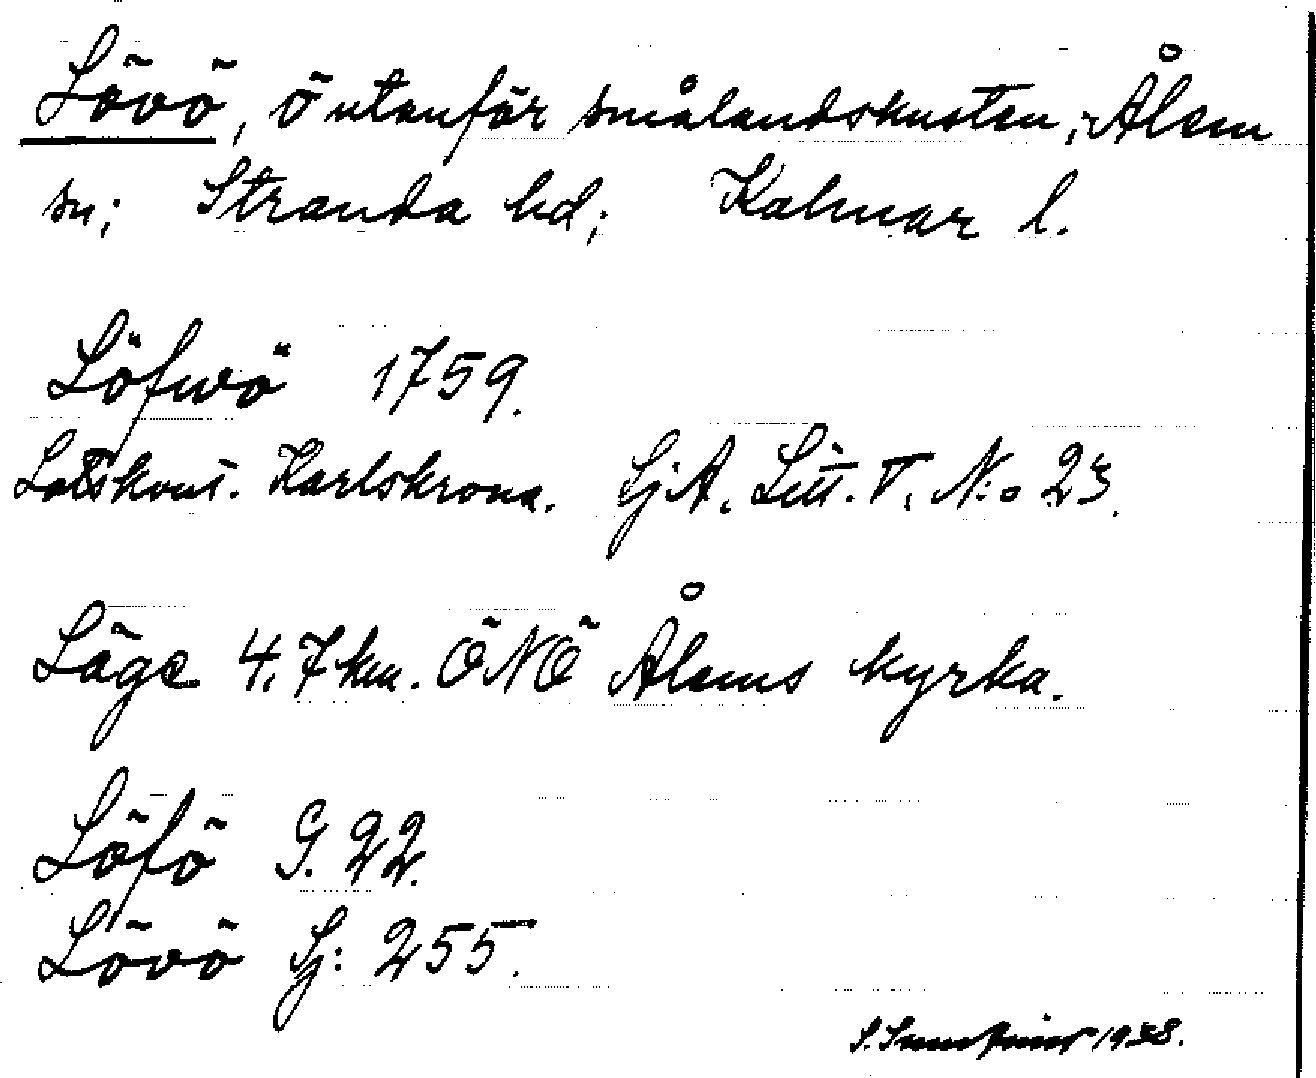 Lövö, ö utanför smålandskusten, Ålem
sn; Stranda hd; Kalmar l.
Löfwö 1759.
Lotskont. Karlskrona. SjA. Litt. V. N:o 23.
Läge 4,7 km. ÖNÖ Ålems kyrka.
Löfö G. 22.
Lövö Sj: 255.
1938.